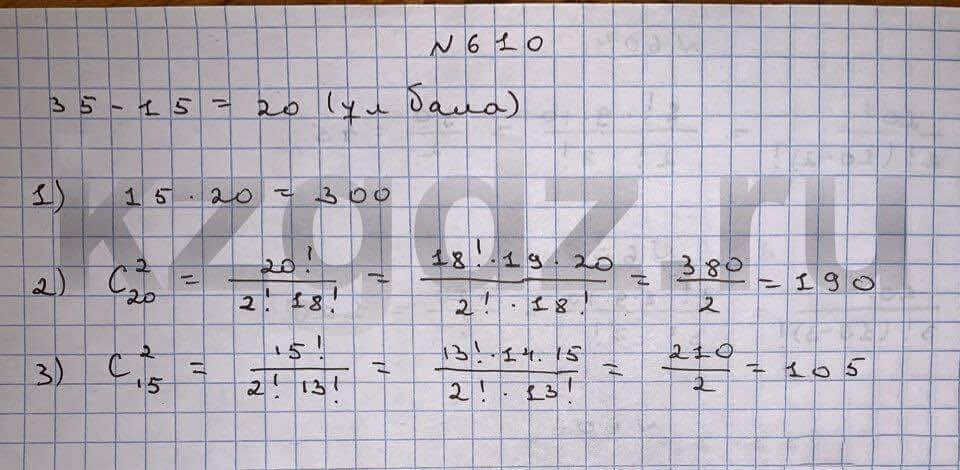 N 610
35 - 15 = 20 (ул бала)
1) 15 · 20 = 300
2) C²₂₀ = 20! / 2! 18! = 18! · 19 · 20 / 2! · 18! = 380 / 2 = 190
3) C²₁₅ = 15! / 2! 13! = 13! · 14 · 15 / 2! · 13! = 210 / 2 = 105
kzgdz.ru